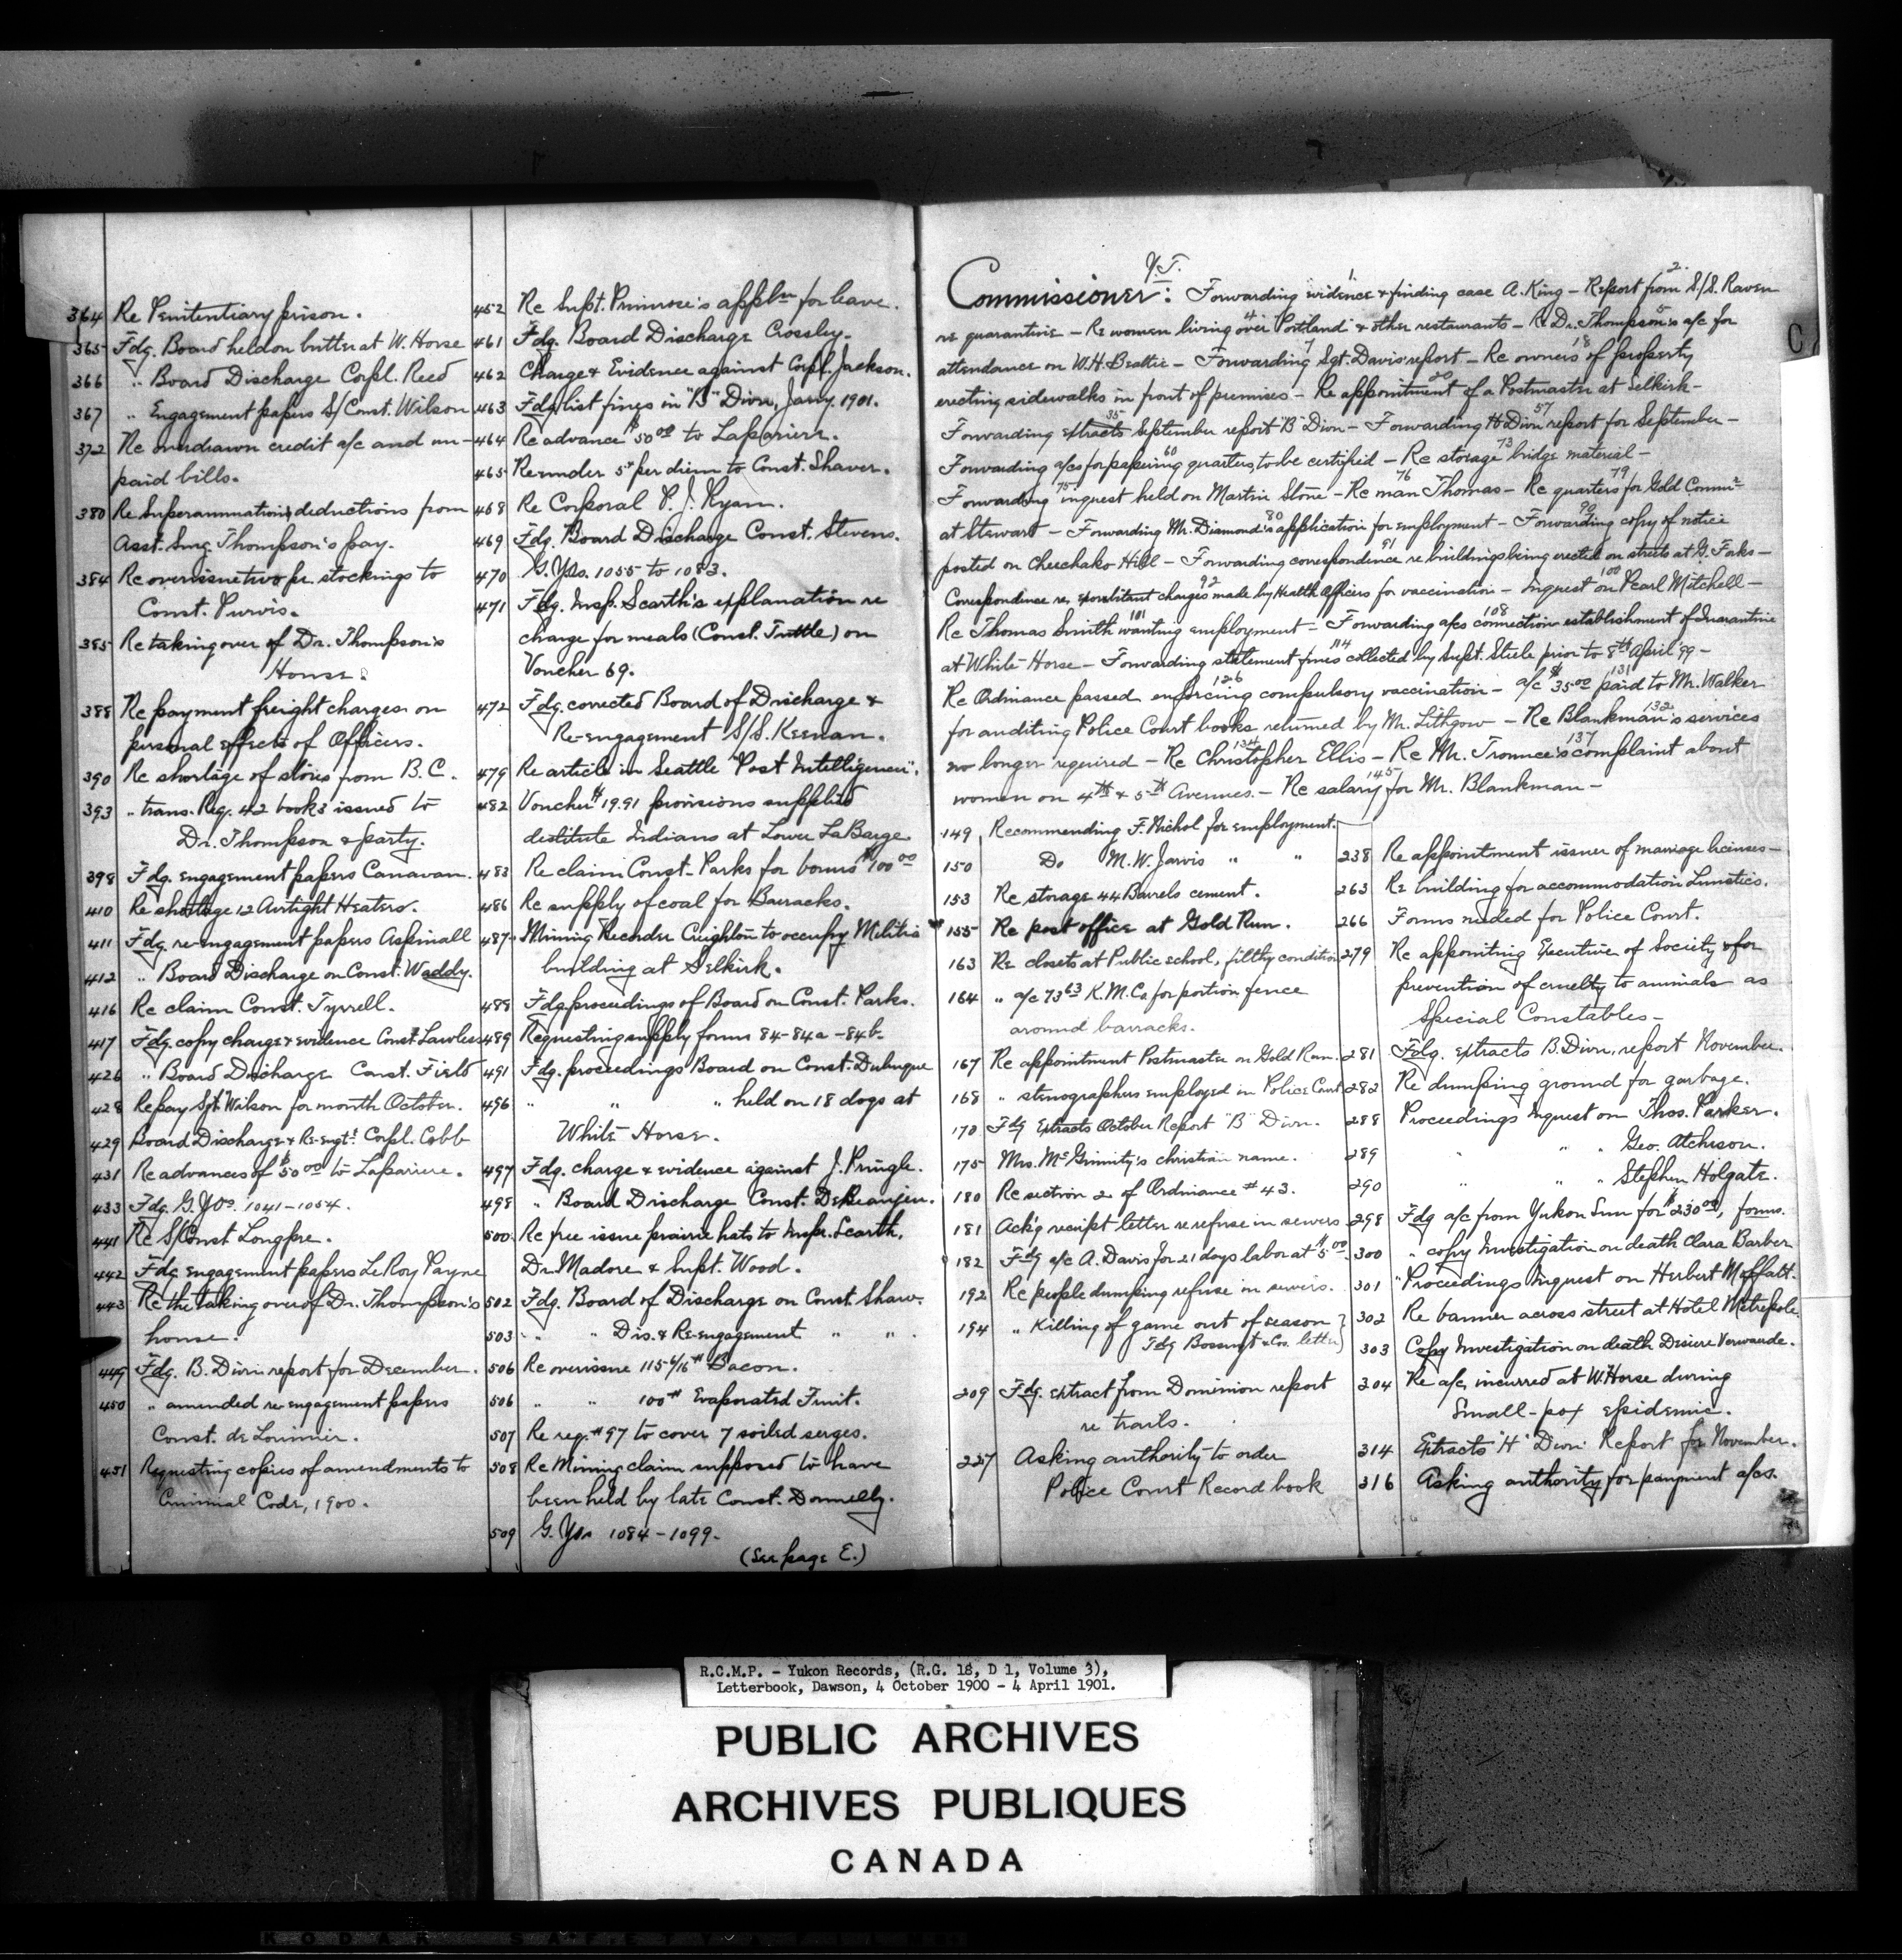 364 Re Penitentiary prison.
365 Fdg. Board held on butter at W. Horse
366 " Board Discharge Corpl. Reed
367 " Engagement papers S/Const. Wilson
372 Re overdrawn credit a/c and un-
paid bills.
380 Re Superannuation deductions from
Asst. Surg. Thompson's pay.
384 Re overissue two pr. stockings to
Const. Purvis.
385 Re taking over of Dr. Thompson's
House.
388 Re payment freight charges on
personal effects of Officers.
390 Re shortage of stores from B.C.
393 " trans. Req. 42 books issued to
Dr. Thompson & party.
398 Fdg. engagement papers Canavan.
410 Re shortage 12 Airtight Heaters.
411 Fdg. re-engagement papers Aspinall
412 " Board Discharge on Const. Waddy.
416 Re claim Const. Tyrrell.
417 Fdg. copy charge & evidence Const. Lawless
426 " Board Discharge Const. Field
428 Re pay Sgt. Wilson for month October.
429 Board Discharge & Re-engt. Corpl. Cobb
431 Re advances of $50.00 to Lapariere.
433 Fdg. G.Y.Os. 1041-1054.
441 Re S/Const Longpre.
442 Fdg engagement papers LeRoy Payne
443 Re the taking over of Dr. Thompson's
house.
449 Fdg. B. Divn report for December.
450 " amended re engagement papers
Const. de Lorimier.
451 Requesting copies of amendments to
Criminal Code, 1900.
452 Re Supt. Primrose's appln for leave.
461 Fdg. Board Discharge Crossley.
462 Charge & Evidence against Corpl. Jackson.
463 Fdg list fines in "B" Divn, Jany. 1901.
464 Re advance $50.00 to Lapariere.
465 Re under 5¢ per diem to Const. Shaver.
468 Re Corporal P. J. Ryan.
469 Fdg. Board Discharge Const. Stevens.
470 G. Yos. 1055 to 1083.
471 Fdg. Insp. Scarth's explanation re
charge for meals (Const. Tuttle) on
Voucher 69.
472 Fdg. corrected Board of Discharge &
Re-engagement S/S. Keenan.
479 Re article in Seattle "Post Intelligencer".
482 Voucher $19.91 provisions supplied
destitute Indians at Lower LaBarge
483 Re claim Const. Parks for bonus $100.00
486 Re supply of coal for Barracks.
487 Mining Recorder Creighton to occupy Militia
building at Selkirk.
488 Fdg proceedings of Board on Const. Parks.
489 Requesting supply forms 84-84a-84b.
491 Fdg. proceedings Board on Const. Dubuque
496 " " " held on 18 dogs at
White Horse.
497 Fdg. charge & evidence against J. Pringle.
498 " Board Discharge Const. DeBeaujeu.
500 Re free issue prairie hats to Inspr. Scarth,
Dr. Madore & Supt. Wood.
502 Fdg. Board of Discharge on Const. Shaw.
503 " " Dis. & Re-engagement " "
506 Re overissue 115 6/16 # Bacon.
506 " " 100# Evaporated Fruit.
507 Re req. #97 to cover 7 soiled serges.
508 Re Mining claim supposed to have
been held by late Const. Donnelly.
509 G. Yos 1084-1099.
(See page E.)
Y.T.
Commissioner: Forwarding evidence 1. & finding case A. King - Report from 2. S/S. Raven
re quarantine - Re women living over 4 "Portland" & other restaurants - Re Dr. Thompson's 5 a/c for
attendance on W.H. Beattie - Forwarding 7 Sgt. Davis' report - Re owners 18 of property
erecting sidewalks in front of premises - Re appointment 20 of a Postmaster at Selkirk -
Forwarding extracts 35 September report "B" Divn - Forwarding H Divn 57 report for September -
Forwarding a/cs for papering 60 quarters, to be certified - Re storage 73 bridge material -
Forwarding 75 inquest held on Martin Stone - Re man 76 Thomas - Re quarters 79 for Gold Commr
at Stewart - Forwarding Mr. Diamond's 80 application for employment - Forwarding 90 copy of notice
posted on Cheechako Hill - Forwarding correspondence 91 re buildings being erected on streets at G. Forks -
Correspondence re exorbitant 92 charges made by Health Officers for vaccination - Inquest on 100 Pearl Mitchell -
Re Thomas Smith 101 wanting employment - Forwarding a/cs 108 connection establishment of Quarantine
at White Horse - Forwarding statement fines 114 collected by Supt. Steele prior to 8th April '99 -
Re Ordinance passed enforcing 126 compulsory vaccination - a/c $35.00 131 paid to Mr. Walker
for auditing Police Court books returned by Mr. Lithgow - Re Blankman's 132 services
no longer required - Re Christopher 134 Ellis - Re Mr. Trounce's 137 complaint about
women on 4th & 5th Avenues. - Re salary 145 for Mr. Blankman -
149 Recommending F. Nichol for employment.
150 Do M.W. Jarvis " "
153 Re storage 44 Barrels cement.
155 Re post office at Gold Run.
163 Re closets at Public school, filthy condition
164 " a/c 73.63 K.M. Co. for portion fence
around barracks.
167 Re appointment Postmaster on Gold Run.
168 " stenographers employed in Police Court
170 Fdg Extracts October Report "B" Divn.
175 Mrs. McGinnity's christian name.
180 Re section 2 of Ordinance #43.
181 Ack'g receipt letter re refuse in sewers
182 Fdg a/c A. Davis for 21 days labor at $5.00
192 Re people dumping refuse in sewers.
194 " Killing of game out of season
Fdg Bossuyt & Cos. letter
209 Fdg. extract from Dominion report
re trails.
227 Asking authority to order
Police Court Record book
238 Re appointment issuer of marriage licenses -
263 Re building for accommodation Lunatics.
266 Forms needed for Police Court.
279 Re appointing Executive of Society for
prevention of cruelty to animals as
Special Constables -
281 Fdg. extracts B. Divn, report November.
282 Re dumping ground for garbage.
288 Proceedings Inquest on Thos. Parker.
289 " " " Geo. Atcheson.
290 " " " Stephen Holgate.
298 Fdg a/c from Yukon Sun for $230.00, forms.
300 " copy Investigation on death Clara Barber
301 "Proceedings Inquest on Herbert Moffatt.
302 Re banner across street at Hotel Metropole.
303 Copy Investigation on death Desiree Verwaude.
304 Re a/cs incurred at W. Horse during
Small-pox epidemic.
314 Extracts "H" Divn Report for November.
316 Asking authority for payment a/cs.
C
R.C.M.P. - Yukon Records, (R.G. 18, D 1, Volume 3),
Letterbook, Dawson, 4 October 1900 - 4 April 1901.
PUBLIC ARCHIVES
ARCHIVES PUBLIQUES
CANADA
KODAK SAFETY FILM